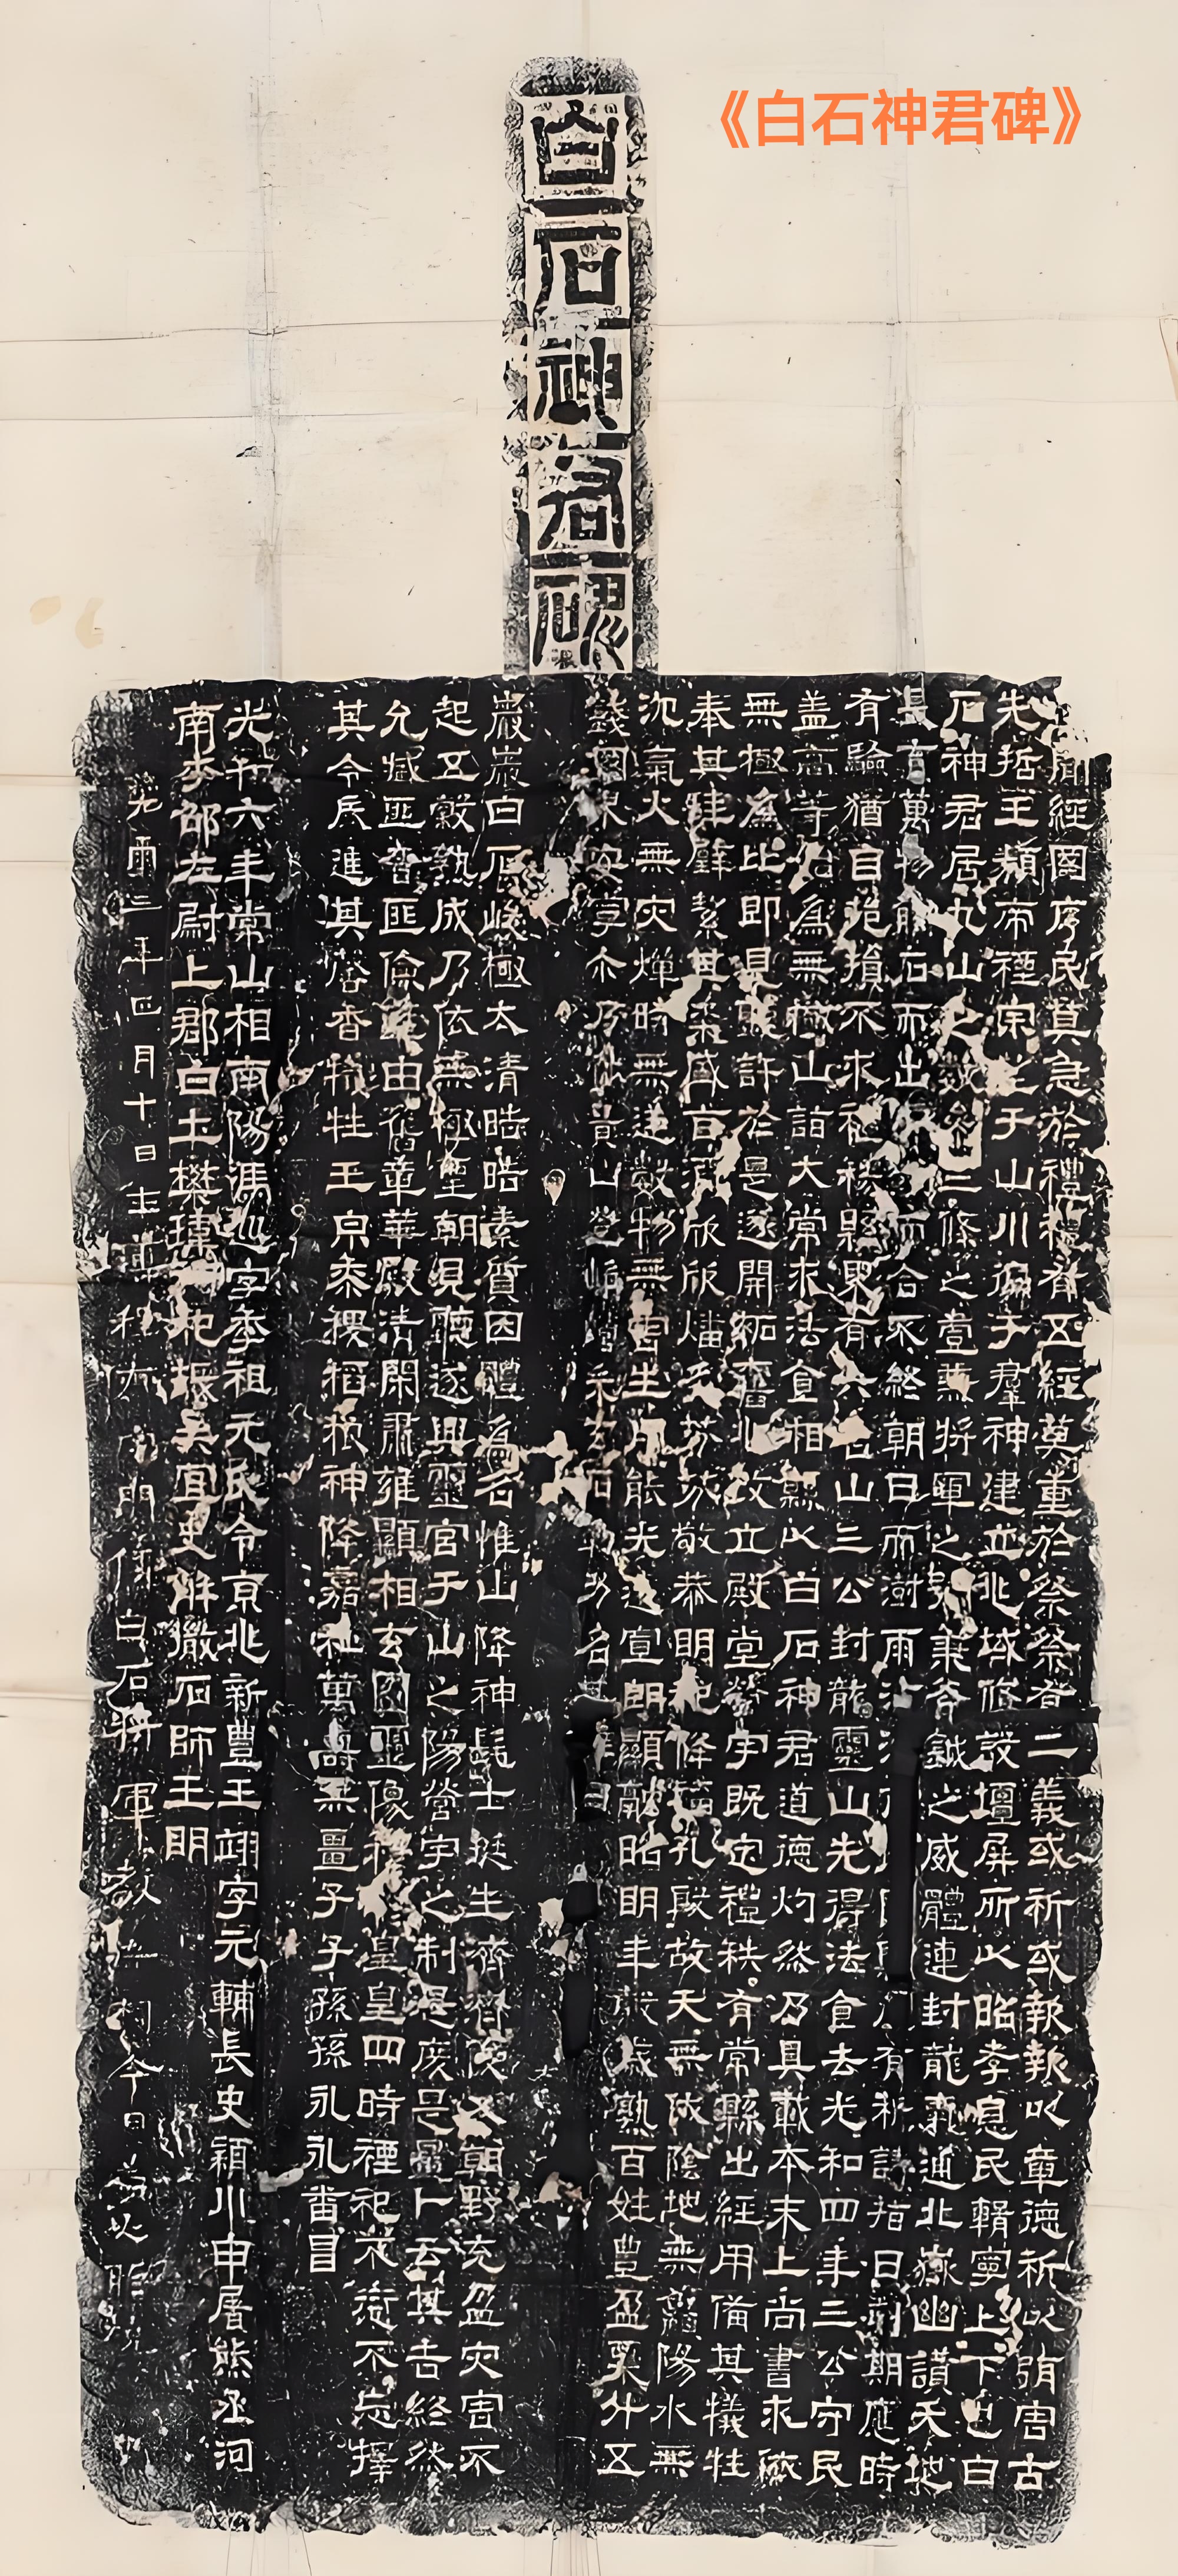 《白石神君碑》
白石神君碑
聞經國序民莫急於禮禮有五經莫重於祭祭有二義或祈或報報以章德祈以弭害古
先哲王類帝禋宗望于山川徧于羣神建立兆域脩設壇屏所以昭孝息民輯寧上下也白
石神君居九山之數參三條之壹兼將軍之號秉斧鉞之威體連封龍氣通北嶽幽讚天地
長育萬物觸石而出膚寸而合不終朝日而澍雨沾有祈請指日刻期應時
有驗猶自挹損不求禮秩縣界有六名山三公封龍靈山先得法食去光和四年三公守民
蓋高等始為無極山詣大常求法食相縣以白石神君道德灼然乃具載本末上尚書求依
無極為比即見聽許於是遂開拓舊兆改立殿堂營宇既定禮秩有常縣出經用備其犧牲
奉其珪璧絜其粢盛旨酒欣欣燔炙芬芬敬恭明祀降福孔殷故天無伏陰地無鱻陽水無
沈氣火無灾燀時無逆數物無害生用能光遠宣朗顯融昭明年穀歲熟百姓豐盈粟升五
錢國界安寧尒乃陟景山登崢嶸采玄石勒功名其辭曰
巖巖白石峻極太清皓皓素質因體為名惟山降神髦士挺生濟濟俊乂朝野充盈灾害不
起五穀熟成乃依無極聖朝見聽遂興靈宮于山之陽營宇之制是度是量卜云其吉終然
允臧匪奢匪儉率由舊章華殿清閑肅雍顯相玄圖靈像穆穆皇皇四時禋祀不愆不忘擇
其令辰進其馨香犧牲玉帛黍稷稻粮神降嘉祉萬壽無疆子子孫孫永永番昌
光和六年常山相南陽馮巡字季祖元氏令京兆新豐王翊字元輔長史潁川申屠熊丞河
南李邵左尉上郡白土樊瑋祠祀掾吳宜史解微石師王明
三年四月十日白石將軍教